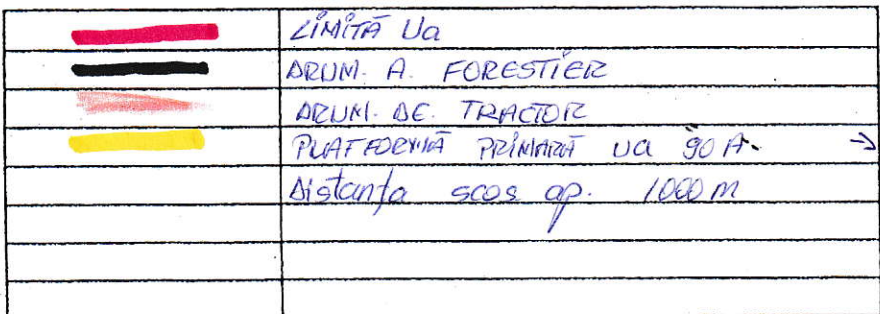 LIMITĂ Ua
DRUM. A. FORESTIER
DRUM. DE. TRACTOR
PLATFORMĂ PRIMARĂ ua 90 A. →
Distanța scos ap. 1000 m